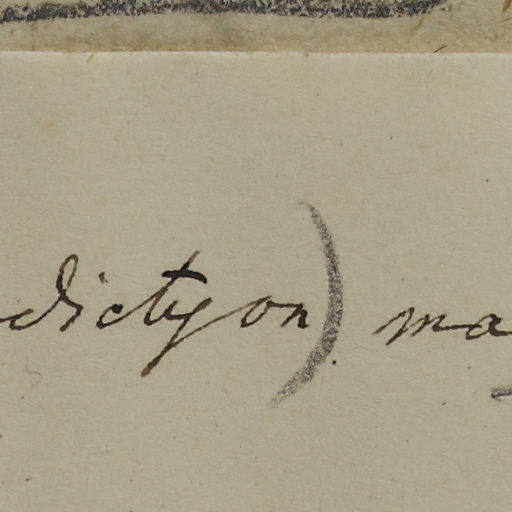 dictyon) ma